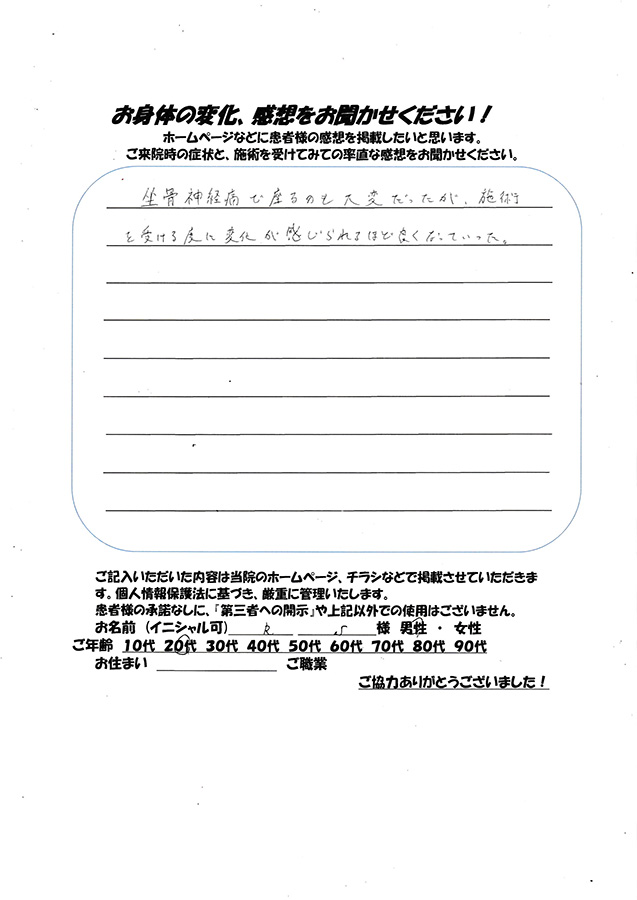 お身体の変化、感想をお聞かせください！
ホームページなどに患者様の感想を掲載したいと思います。
ご来院時の症状と、施術を受けてみての率直な感想をお聞かせください。
坐骨神経痛で座るのも大変だったが、施術
を受ける度に変化が感じられるほど良くなっていった。
ご記入いただいた内容は当院のホームページ、チラシなどで掲載させていただきま
す。個人情報保護法に基づき、厳重に管理いたします。
患者様の承諾なしに、「第三者への開示」や上記以外での使用はございません。
お名前（イニシャル可） R S 様 男性 ・ 女性
ご年齢 10代 20代 30代 40代 50代 60代 70代 80代 90代
お住まい ご職業
ご協力ありがとうございました！